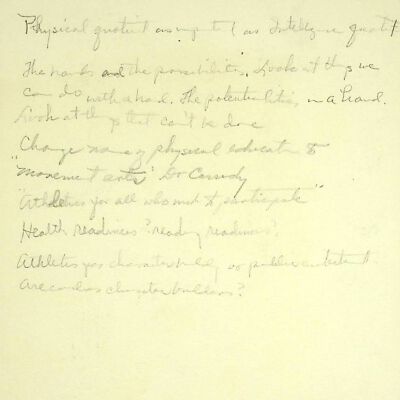 Physical quotient as important as Intelligence quotient
The hands and the possibilities. Look at things we
can do with a hand. The potentialities in a hand.
Look at things that can't be done
Change name of physical education to
"movement arts" Dr Cassidy
"Athletics for all who need to participate"
Health readiness? reading readiness?
Athletics for character building or public
are coaches character builders?